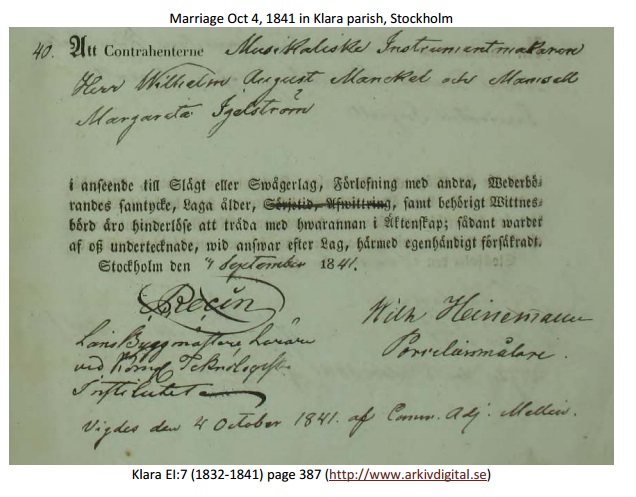 Marriage Oct 4, 1841 in Klara parish, Stockholm
40. Att Contrahenterne Musikaliske Instrumentmakaren
Herr Wilhelm August Manckel och Mamsell
Margareta Igelström
i anseende till Slägt eller Swågerlag, Förlofning med andra, Wederbö-
randes samtycke, Laga ålder, Sörjetid, Afwittring, samt behörigt Wittnes-
börd äro hinderlöse att träda med hwarannan i Äktenskap; sådant warder
af oß undertecknade, wid answar efter Lag, härmed egenhändigt försäkradt.
Stockholm den 7 September 1841.
Wilh Heinemann
Porcelainsmålare.
Läns Byggmästare, Lärare
ved Kongl Teknologiska
Institutet
Vigdes den 4 October 1841. af Comm. Adj. Mellin.
Klara EI:7 (1832-1841) page 387 (http://www.arkivdigital.se)